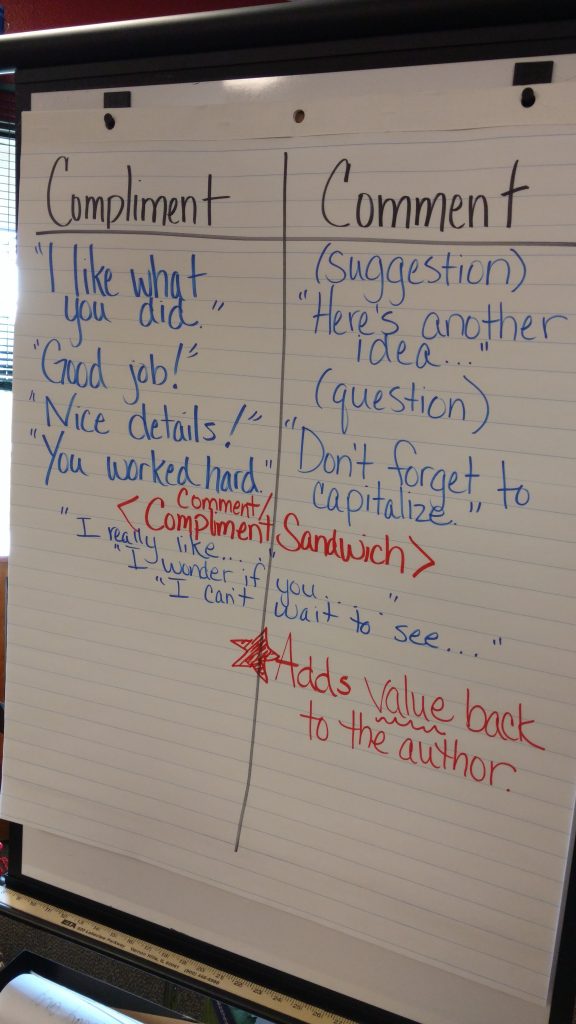 Compliment
"I like what
you did."
"Good job!"
"Nice details!"
"You worked hard."
Comment
(suggestion)
"Here's another
idea..."
(question)
"Don't forget to
capitalize."
Comment/
<Compliment Sandwich>
"I really like....."
"I wonder if you....."
"I can't wait to see..."
Adds value back
to the author.